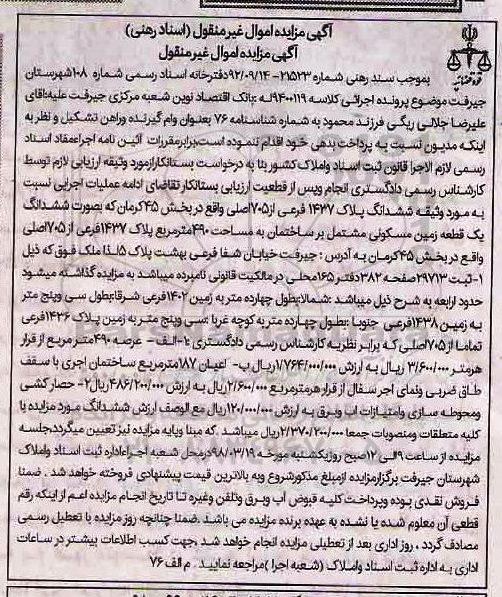 آگهی مزایده اموال غیر منقول (اسناد رهنی)
آگهی مزایده اموال غیر منقول
قوه قضائیه
بموجب سند رهنی شماره ۲۱۵۲۳-۹۲/۰۹/۱۴دفترخانه اسناد رسمی شماره ۱۰۸شهرستان
جیرفت موضوع پرونده اجرائی کلاسه ۹۴۰۰۱۱۹له بانک اقتصاد نوین شعبه مرکزی جیرفت علیه:آقای
علیرضا جلالی ریگی فرزند محمود به شماره شناسنامه ۷۶ بعنوان وام گیرنده وراهن تشکیل و نظر به
اینکه مدیون نسبت به پرداخت بدهی خود اقدام ننموده است،برابرمقررات آئین نامه اجراءمفاد اسناد
رسمی لازم الاجرا قانون ثبت اسناد واملاک کشور بنا به درخواست بستانکارازمورد وثیقه ارزیابی لازم توسط
کارشناس رسمی دادگستری انجام وپس از قطعیت ارزیابی بستانکار تقاضای ادامه عملیات اجرایی نسبت
به مورد وثیقه ششدانگ پلاک ۱۴۳۷ فرعی از۷۰۵اصلی واقع دربخش ۴۵کرمان که بصورت ششدانگ
یک قطعه زمین مسکونی مشتمل بر ساختمان به مساحت ۴۹۰مترمربع پلاک ۱۴۳۷فرعی از۷۰۵اصلی
واقع دربخش ۴۵کرمان به آدرس : جیرفت خیابان شفا فرعی بهشت پلاک ۵لذا ملک فوق که ذیل
۱-ثبت ۲۹۷۱۳صفحه ۳۸۲دفتر ۱۶۵محلی در مالکیت قانونی نامبرده میباشد به مزایده گذاشته میشود
حدود اربعه به شرح ذیل میباشد :شمالا:بطول چهارده متر به زمین ۱۴۰۲فرعی شرقا:بطول سی وپنج متر
به زمین ۱۴۳۸فرعی جنوبا :بطول چهارده متر به کوچه غربا :سی وپنج متر به زمین پلاک ۱۴۳۶فرعی
تماما از۷۰۵اصلی که برابر نظریه کارشناس رسمی دادگستری :۱-الف- عرصه ۴۹۰متر مربع از قرار
هرمتر ۳/۶۰۰/۰۰۰ ریال به ارزش ۱/۷۶۴/۰۰۰/۰۰۰ریال ب- اعیان ۱۸۷مترمربع ساختمان اجری با سقف
طاق ضربی ونمای اجر سفال از قرار هرمترمربع ۲/۶۰۰/۰۰۰ ریال به ارزش ۴۸۶/۲۰۰/۰۰۰ریال۲- حصار کشی
ومحوطه سازی وامتیازات اب وبرق به ارزش ۱۲۰/۰۰۰/۰۰۰ریال مع الوصف ارزش ششدانگ مورد مزایده با
کلیه متعلقات ومنصوبات جمعا ۲/۳۷۰/۲۰۰/۰۰۰ریال میباشد. که مبنا وپایه مزایده نیز تعیین میگردد،جلسه
مزایده از ساعت ۹الی ۱۲ صبح روزیکشنبه مورخه ۹۸/۰۳/۱۹درمحل شعبه اجراءاداره ثبت اسناد واملاک
شهرستان جیرفت برگزارمزایده ازمبلغ مذکورشروع وبه بالاترین قیمت پیشنهادی فروخته خواهد شد . ضمنا
فروش نقدی بوده وپرداخت کلیه قبوض آب وبرق وتلفن وغیره تا تاریخ انجام مزایده اعم از اینکه رقم
قطعی آن معلوم شده یا نشده به عهده برنده مزایده می باشد .ضمنا چنانچه روز مزایده با تعطیل رسمی
مصادف گردد ، روز اداری بعد از تعطیلی مزایده انجام خواهد شد ،جهت کسب اطلاعات بیشتر در ساعات
اداری به اداره ثبت اسناد واملاک (شعبه اجرا )مراجعه نمایید . م الف ۷۶